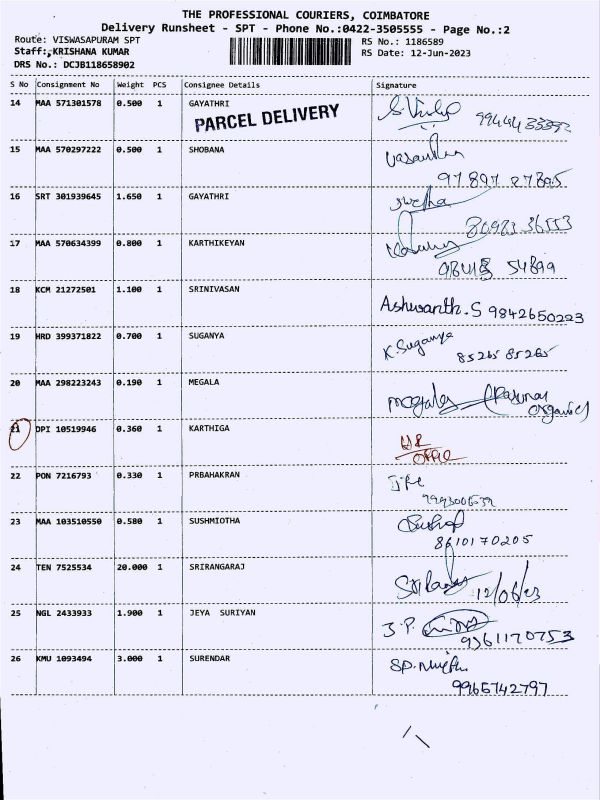 THE PROFESSIONAL COURIERS, COIMBATORE
Delivery Runsheet - SPT - Phone No.:0422-3505555 - Page No.:2
Route: VISWASAPURAM SPT RS No.: 1186589
Staff: KRISHANA KUMAR RS Date: 12-Jun-2023
DRS No.: DCJB118658902
S No Consignment No Weight PCS Consignee Details Signature
14 MAA 571301578 0.500 1 GAYATHRI
PARCEL DELIVERY
15 MAA 570297222 0.500 1 SHOBANA
16 SRT 301939645 1.650 1 GAYATHRI
17 MAA 570634399 0.800 1 KARTHIKEYAN
18 KCM 21272501 1.100 1 SRINIVASAN
Ashwanth.S 9842650223
19 HRD 399371822 0.700 1 SUGANYA
K.Suganya
85265 85265
20 MAA 298223243 0.190 1 MEGALA
organics
21 DPI 10519946 0.360 1 KARTHIGA
22 PON 7216793 0.330 1 PRBAHAKRAN
23 MAA 103510550 0.580 1 SUSHMIOTHA
8610170205
24 TEN 7525534 20.000 1 SRIRANGARAJ
12/06/23
25 NGL 2433933 1.900 1 JEYA SURIYAN
J.P.
9361170753
26 KMU 1093494 3.000 1 SURENDAR
9965742797